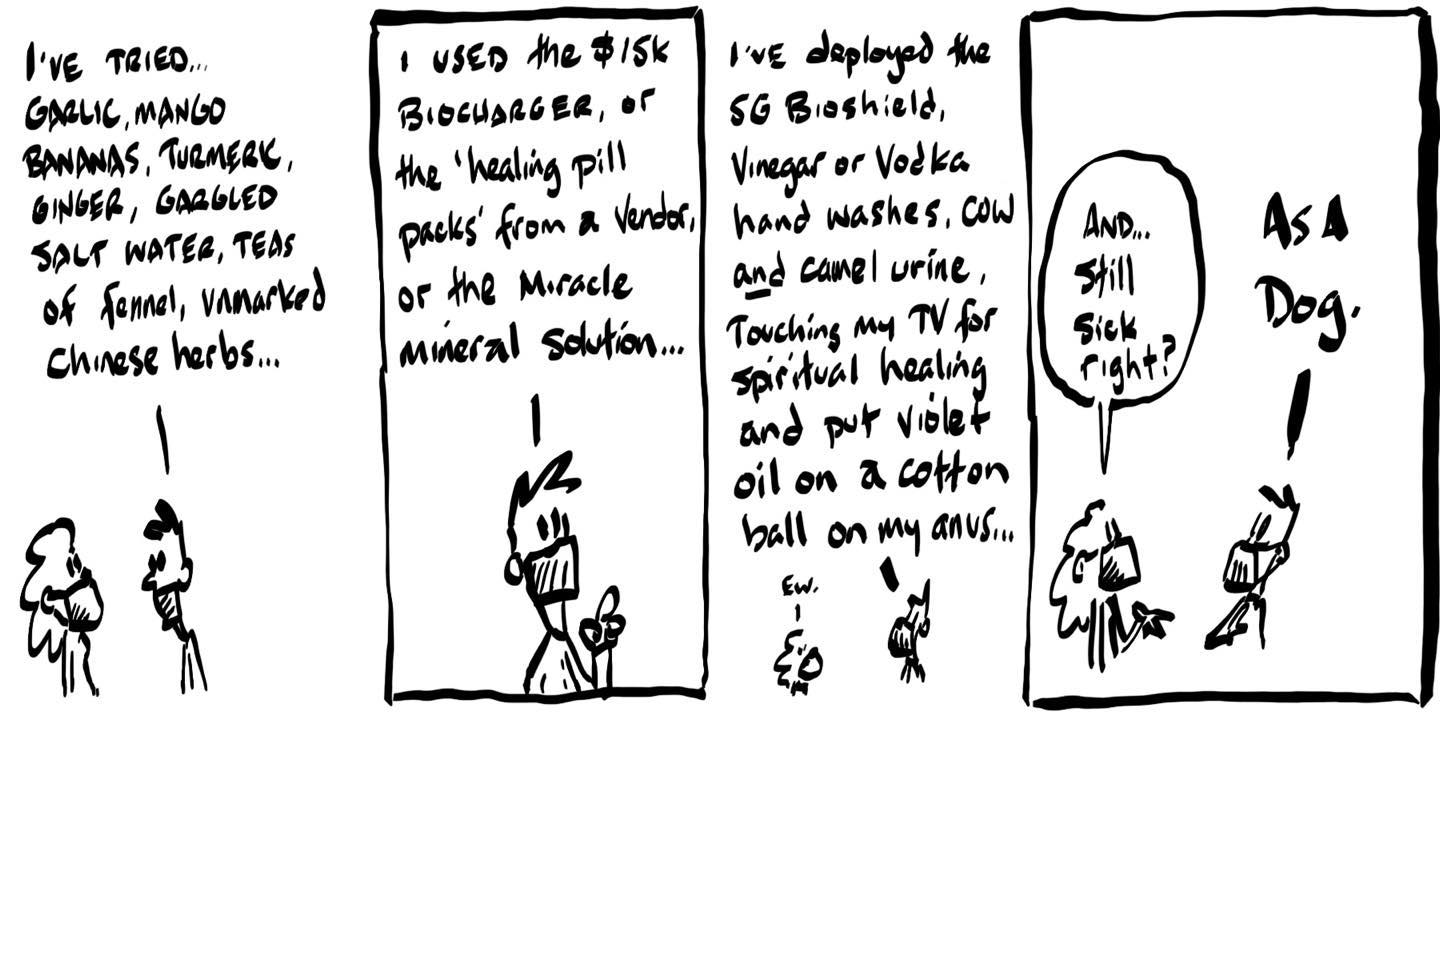 I'VE TRIED...
GARLIC, MANGO
BANANAS, TURMERIC,
GINGER, GARGLED
SALT WATER, TEAS
of fennel, unmarked
Chinese herbs...
I USED the $15K
BIOCHARGER, or
the 'healing pill
packs' from a Vendor,
or the Miracle
mineral Solution...
I'VE deployed the
5G Bioshield,
Vinegar or Vodka
hand washes, COW
and camel urine,
Touching my TV for
spiritual healing
and put violet
oil on a cotton
ball on my anus...
EW.
AND...
Still
Sick
right?
AS A
Dog.